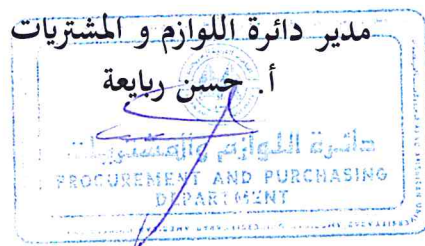 مدير دائرة اللوازم و المشتريات
أ. حسن ربايعة
دائرة اللوازم والمشتريات
PROCUREMENT AND PURCHASING
DEPARTMENT